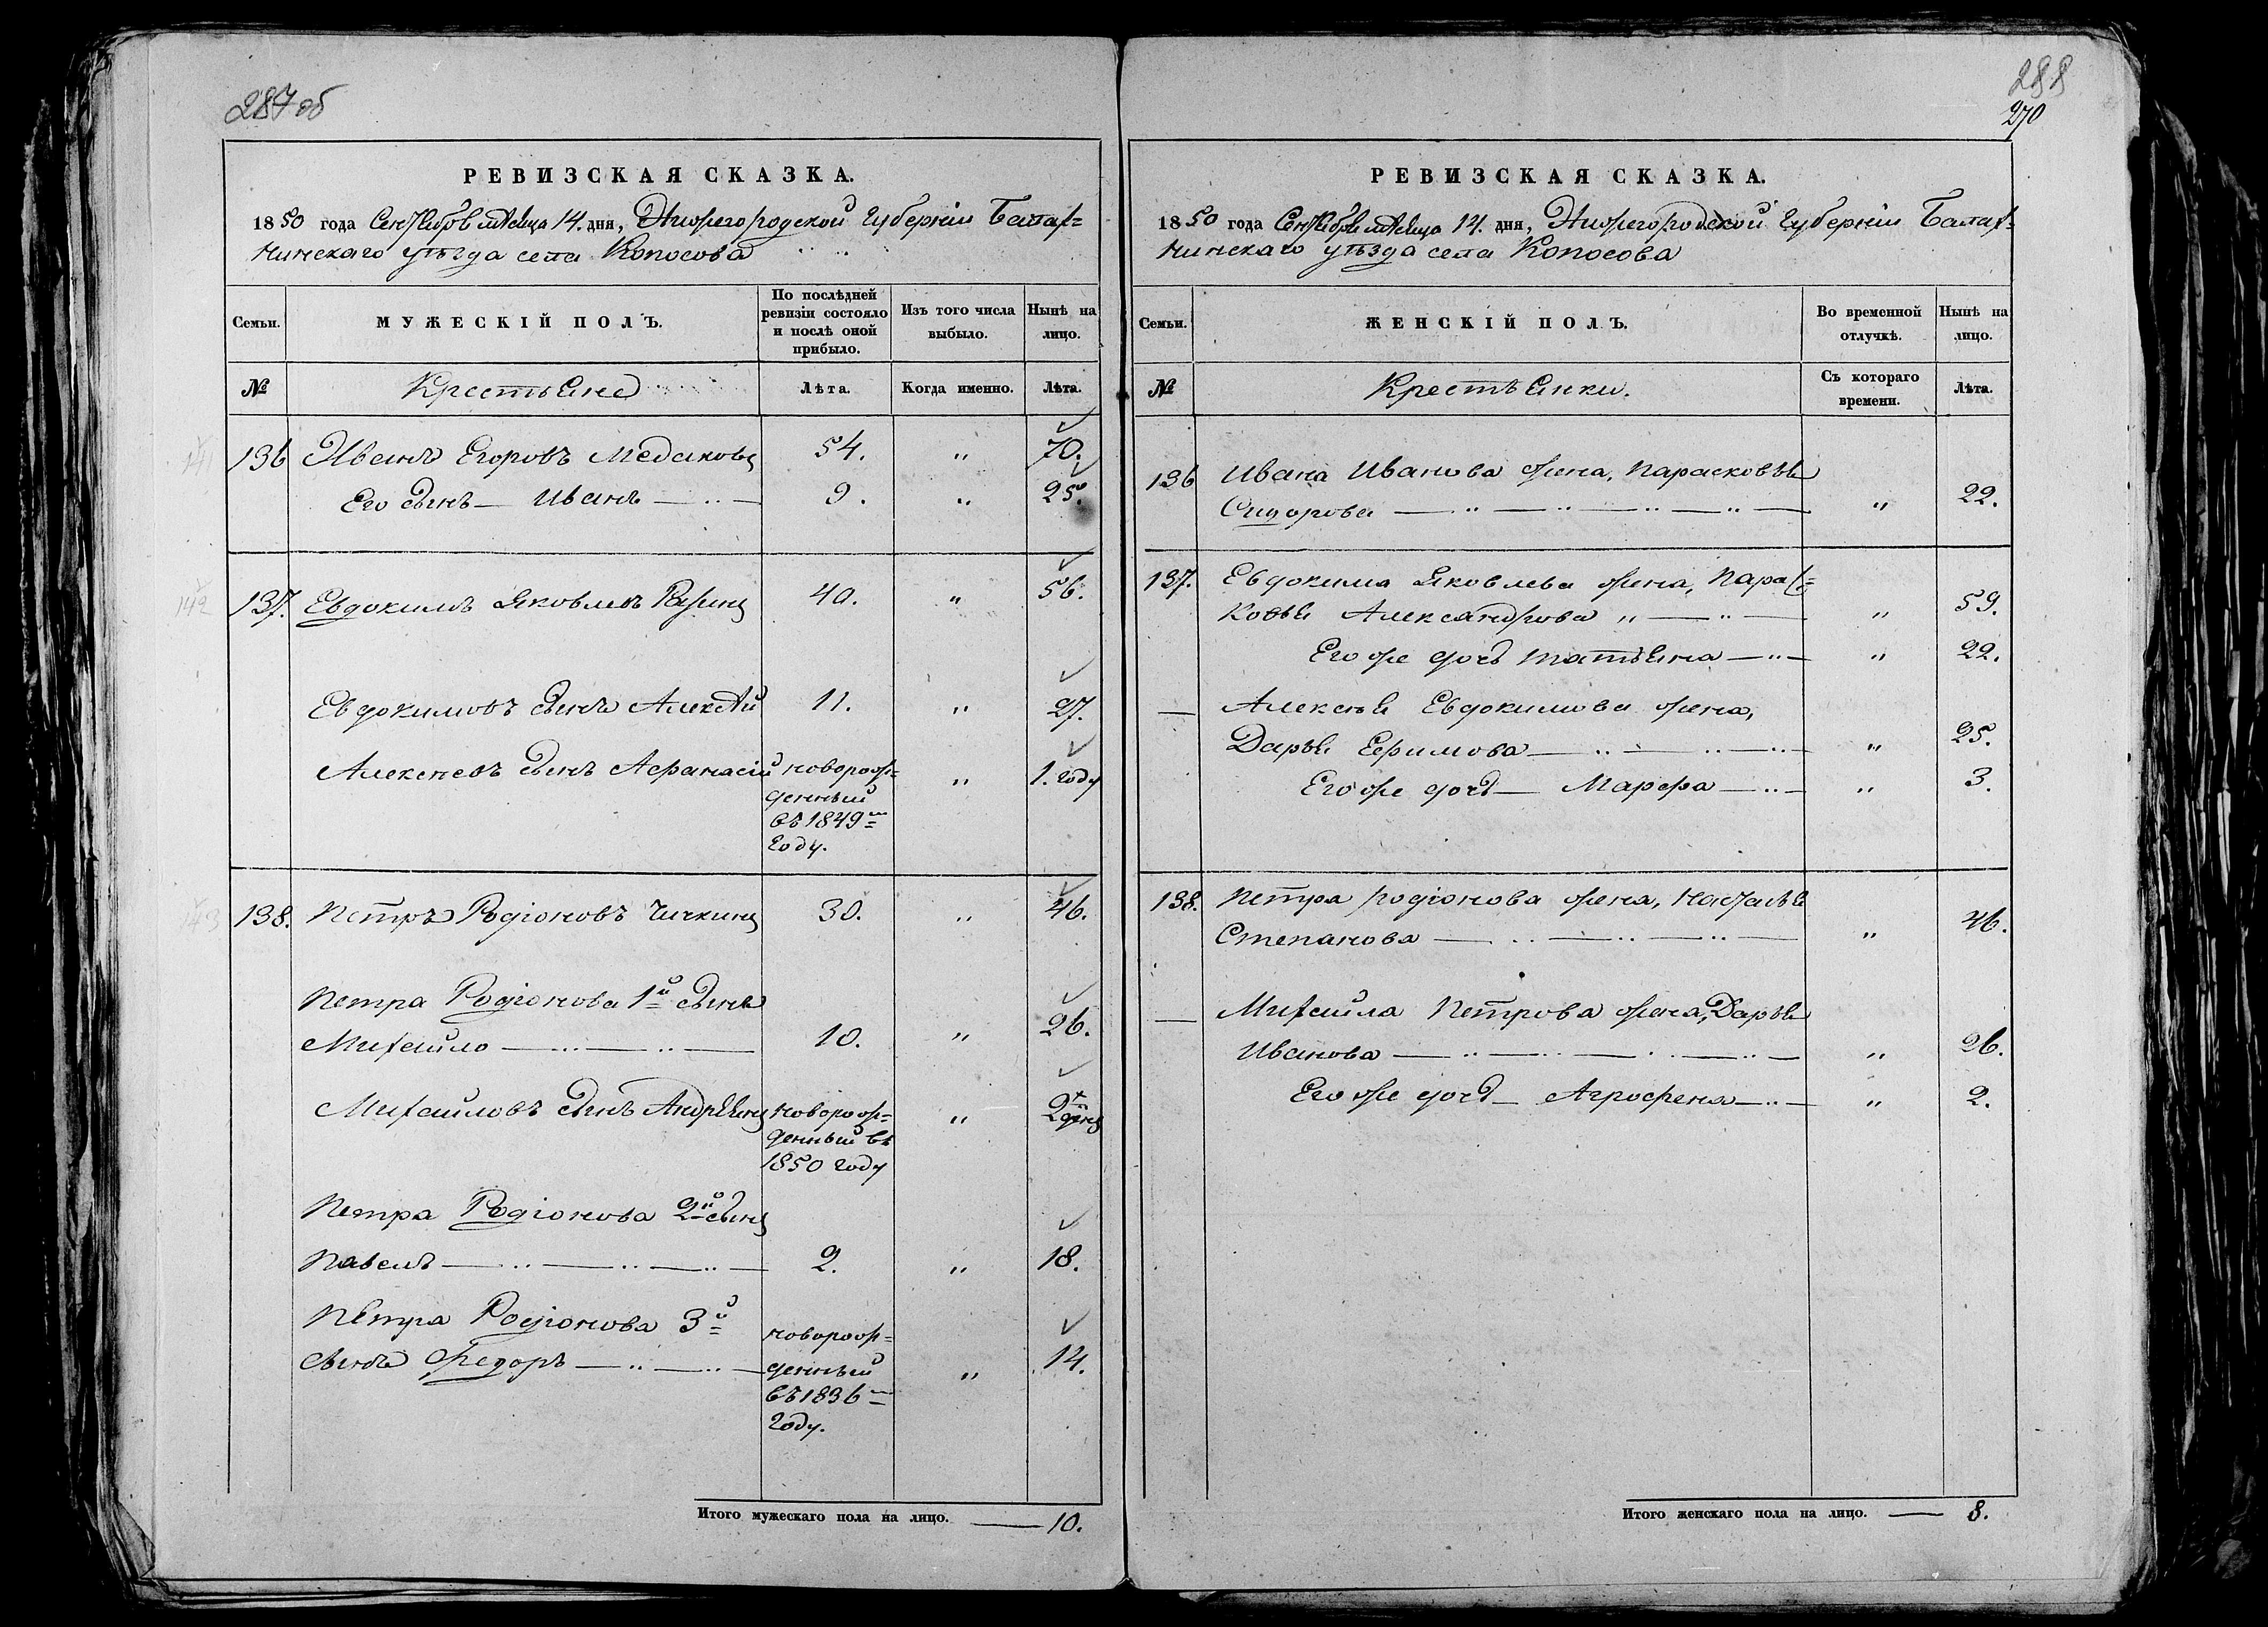 287 об
РЕВИЗСКАЯ СКАЗКА.
1850 года Сентября мѣсяца 14. дня, Нижегородской Губерніи Балах=
нинскаго уѣзда села Копосова
Семьи.
МУЖЕСКІЙ ПОЛЪ.
По послѣдней
ревизіи состояло
и послѣ оной
прибыло.
Изъ того числа
выбыло.
Нынѣ на
лицо.
№
Крестьяне
Лѣта.
Когда именно.
Лѣта.
141
136 Иванъ Егоровъ 54. „ 70.
Его сынъ — Иванъ — „ — 9. „ 25.
142
137. Евдокимъ Яковлевъ 40. „ 56.
Евдокимовъ сынъ Алексѣй 11. „ 27.
Алексѣевъ сынъ Афанасій новорож= „ 1. году
денный
въ 1849м
году.
143
138. Петръ Родіоновъ Чичкинъ 30. „ 46.
Петра Родіонова 1й сынъ
Михайло — „ — „ — 10. „ 26.
Михайловъ сынъ Андреянъ новорож= „ 2 дней
денный въ
1850 году
Петра Родіонова 2й сынъ
Павелъ — „ — „ — „ — 2. „ 18.
Петра Родіонова 3й новорож=
сынъ Федоръ — „ — „ — денный „ 14.
въ 1836
году.
Итого мужескаго пола на лицо. — 10.
288
270
РЕВИЗСКАЯ СКАЗКА.
1850 года Сентября мѣсяца 14. дня, Нижегородской Губерніи Балах=
нинскаго уѣзда села Копосова
Семьи.
ЖЕНСКІЙ ПОЛЪ.
Во временной
отлучкѣ.
Нынѣ на
лицо.
№
Крестьянки.
Съ котораго
времени.
Лѣта.
136 Ивана Иванова жена, Парасковья
Сидорова — „ — „ — „ — „ — „ 22.
137. Евдокима Яковлева жена, Парас=
ковья Александрова „ — „ — „ 59.
Его же дочь Татьяна — „ — „ 22.
— Алексѣя Евдокимова жена,
Дарья Ефимова — „ — „ — „ — „ 25.
Его же дочь — Марфа — „ — „ 3.
138. Петра Родіонова жена, Наталья
Степанова — „ — „ — „ — „ 46.
— Михайла Петрова жена, Дарья
Иванова — „ — „ — „ — „ — „ 26.
Его же дочь — Агрофена — „ — „ 2.
Итого женскаго пола на лицо. — 8.